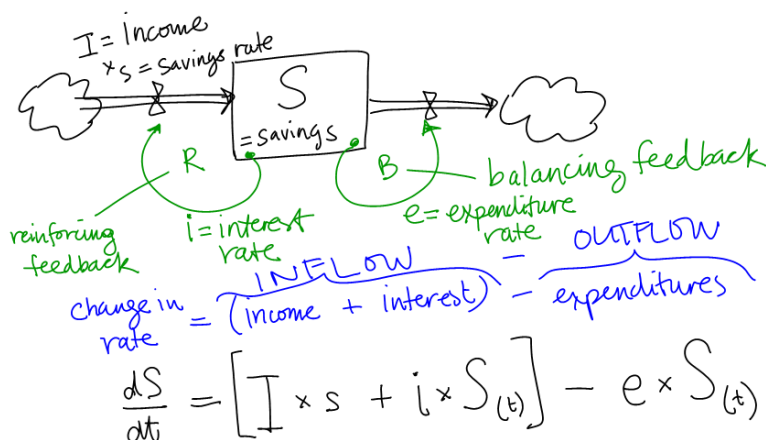 I = income
× s = savings rate
S
= savings
R
B
balancing feedback
reinforcing
feedback
i = interest
rate
e = expenditure
rate
INFLOW – OUTFLOW
change in
rate
= (income + interest) – expenditures
dS/dt = [I × s + i × S(t)] – e × S(t)